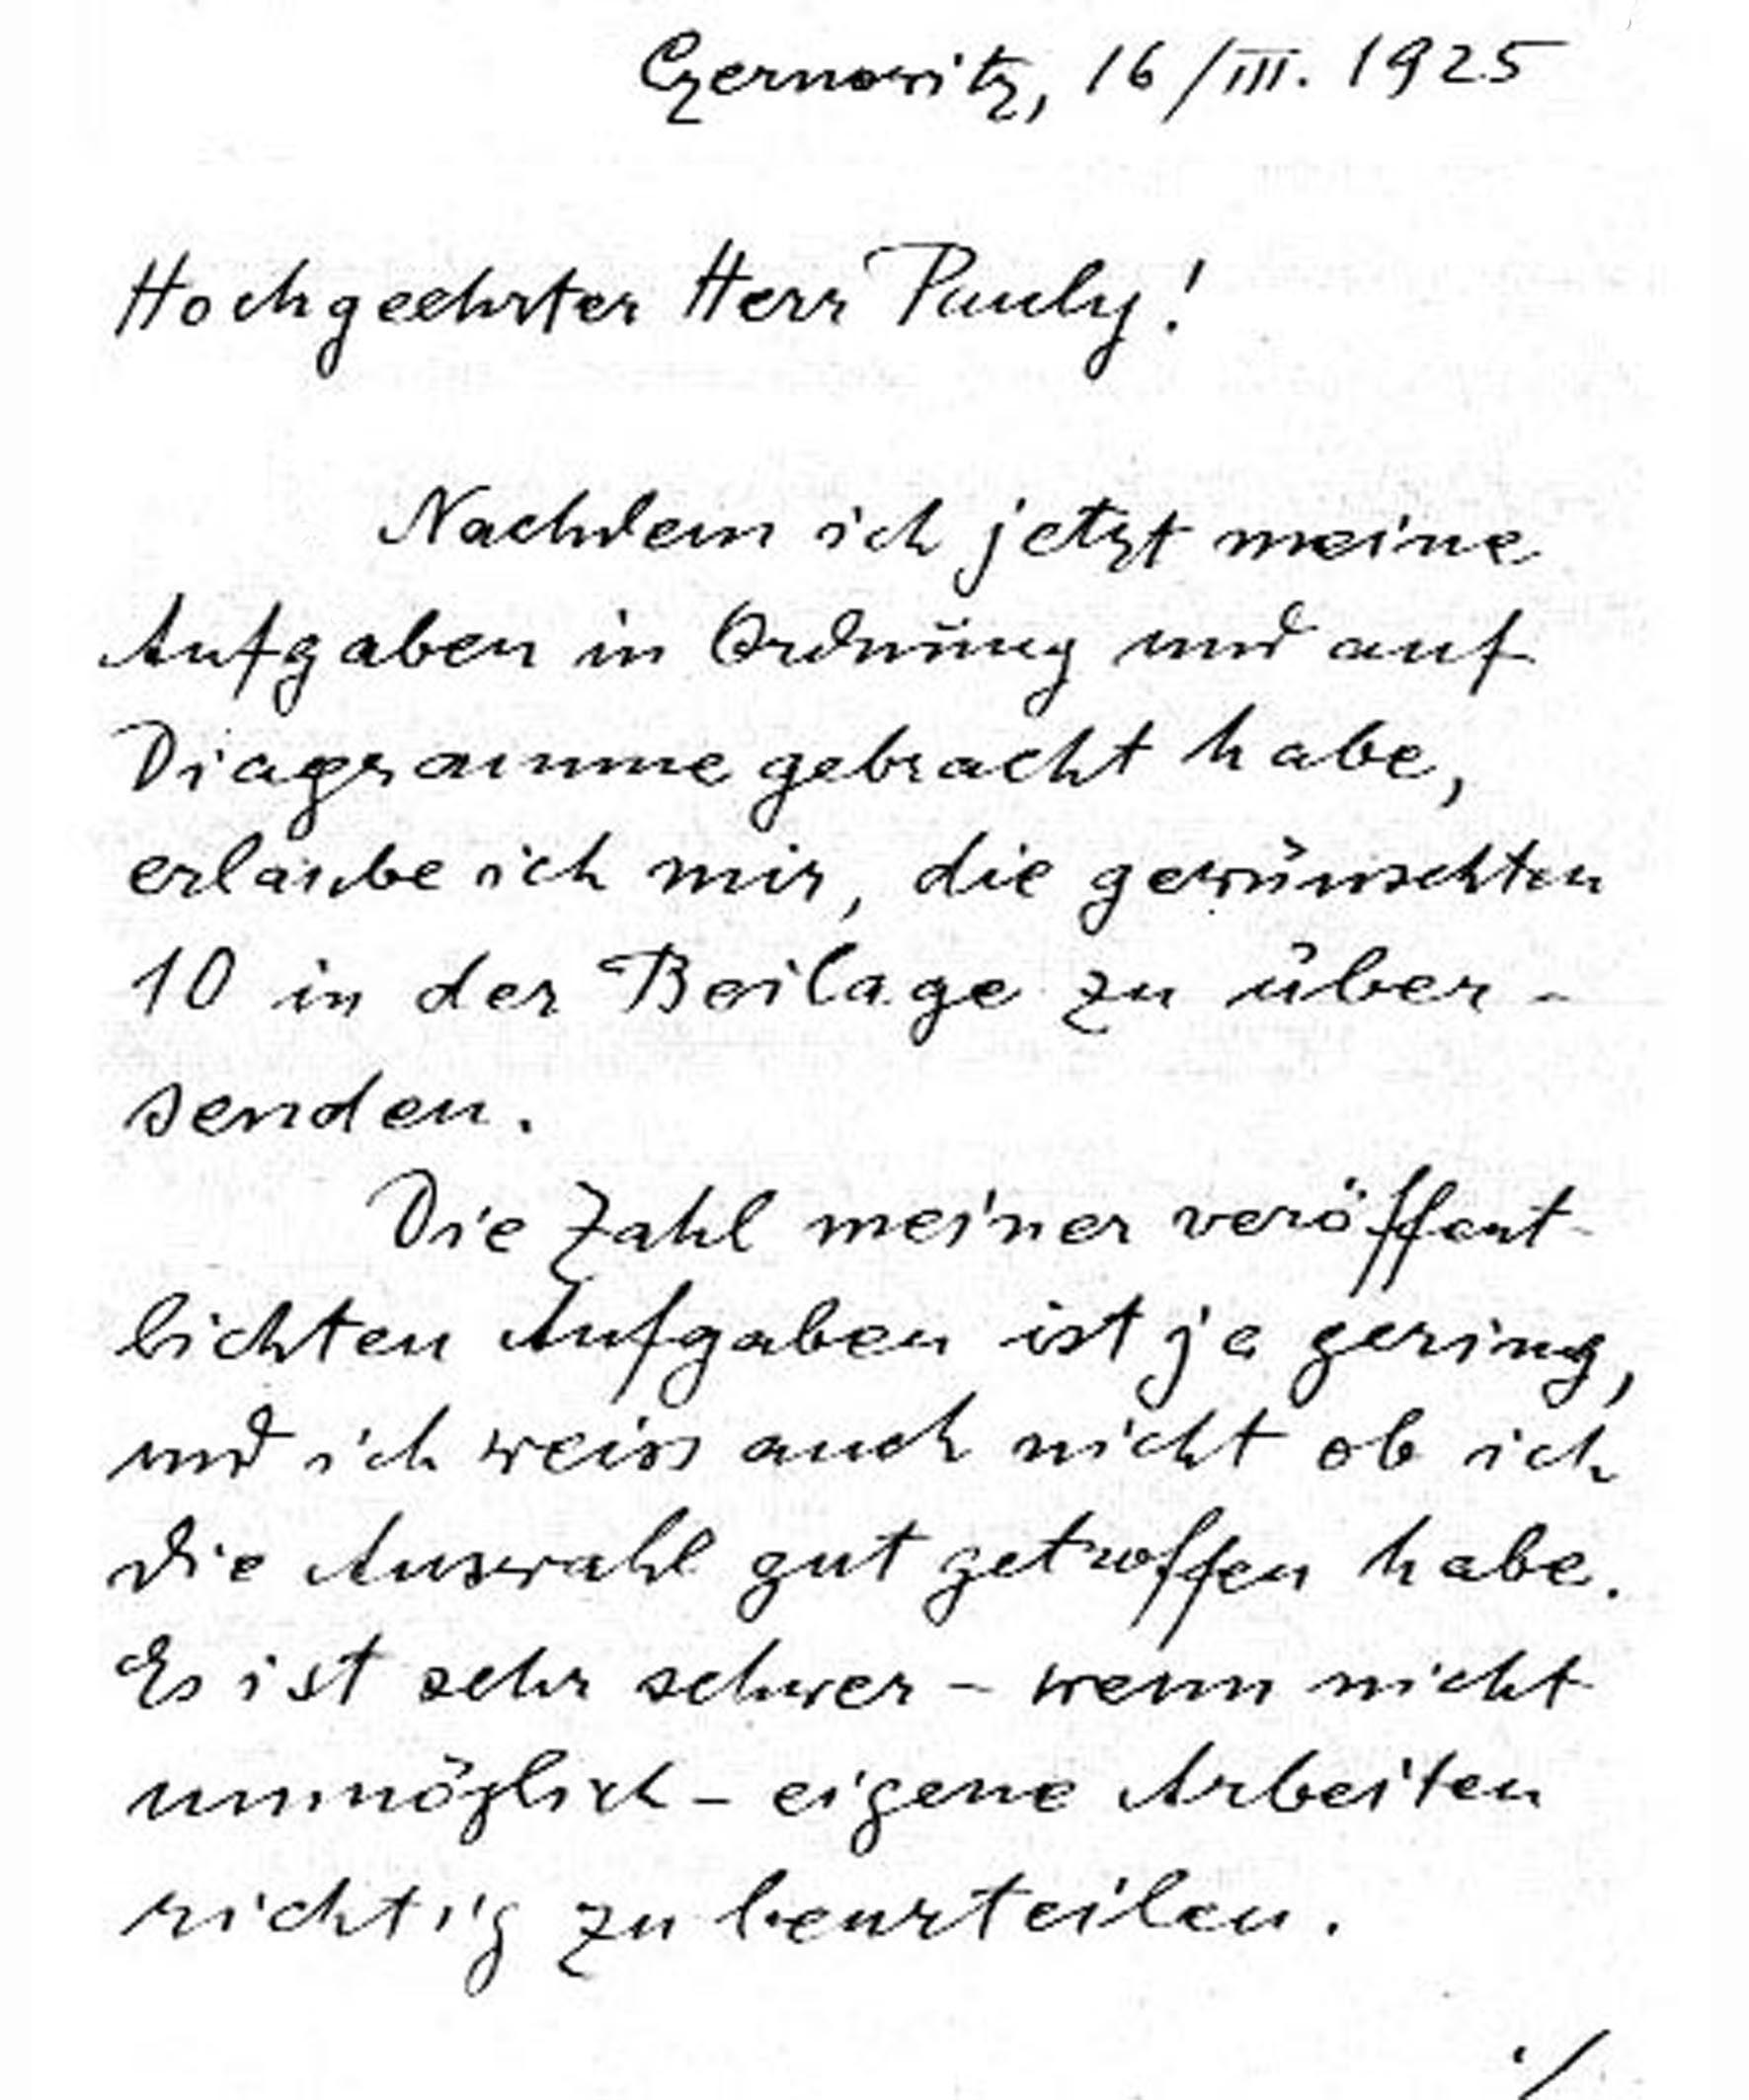 Czernowitz, 16/III. 1925
Hochgeehrter Herr Pauly!
Nachdem ich jetzt meine
Aufgaben in Ordnung und auf
Diagramme gebracht habe,
erlaube ich mir, die gewünschten
10 in der Beilage zu über-
senden.
Die Zahl meiner veröffent-
lichten Aufgaben ist ja gering,
und ich weiss auch nicht ob ich
die Auswahl gut getroffen habe.
Es ist sehr schwer - wenn nicht
unmöglich - eigene Arbeiten
richtig zu beurteilen.
./